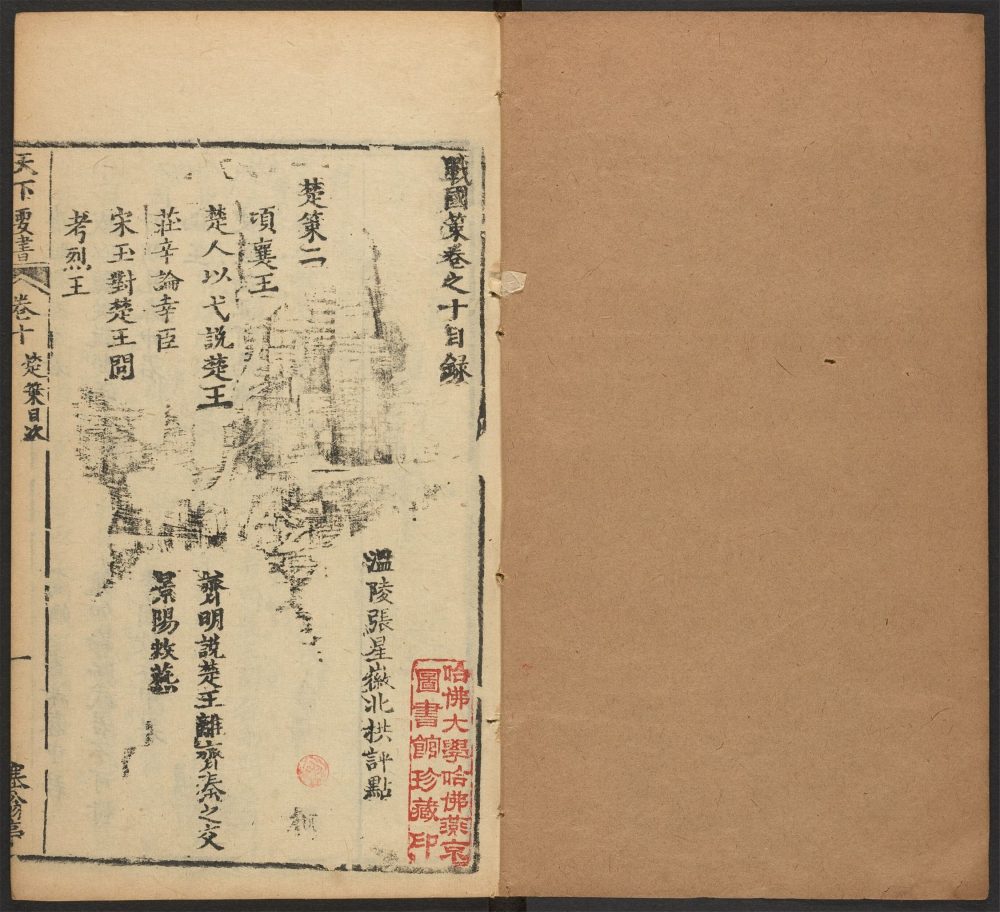 戰國策卷之十目錄
溫陵張星徽北拱評點
楚策二
項襄王
楚人以弋説楚王
齊明説楚王離齊秦之交
莊辛論幸臣
景陽救燕
宋玉對楚王問
考烈王
天下要書
卷十
楚策目次
一
塞翁亭
哈佛大學哈佛燕京
圖書館珍藏印